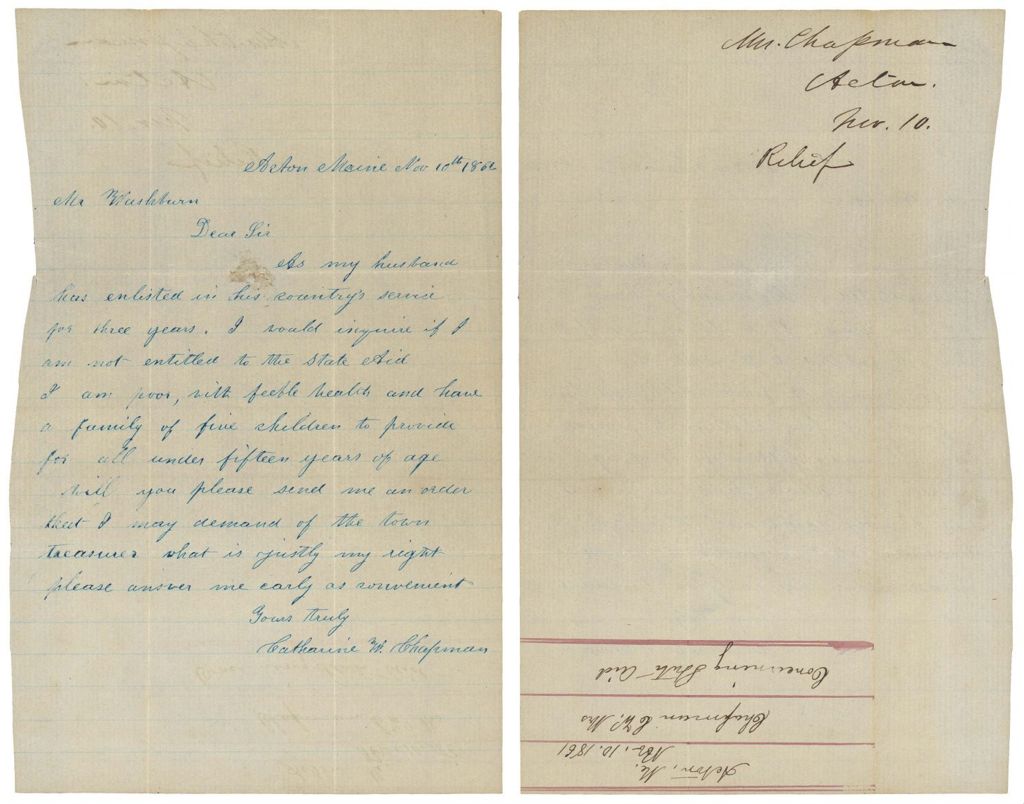 Acton Maine Nov 10th 1861
Mr Washburn
Dear Sir
As my husband
has enlisted in his country's service
for three years. I would inquire if I
am not entitled to the State Aid
I am poor, with feeble health and have
a family of five children to provide
for all under fifteen years of age
will you please send me an order
that I may demand of the town
treasurer what is justly my right
please answer me early as convenient
Yours truly
Catharine W. Chapman
Mrs. Chapman
Acton.
Nov. 10.
Relief
Acton, Me.
Nov. 10. 1861
Chapman C. W. Mrs
Concerning State aid